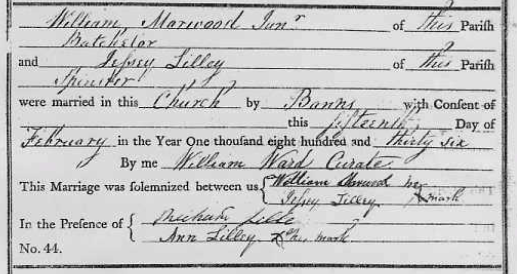 William Marwood Junr of this Parish
Batchelor
and Jepsey Lilley of this Parish
Spinster
were married in this Church by Banns with Consent of
this fifteenth Day of
February in the Year One thousand eight hundred and thirty six
By me William Ward Curate
This Marriage was solemnized between us William Marwood
Jepsey Lilley X mark
In the Presence of
Ann Lilley X her mark
No. 44.